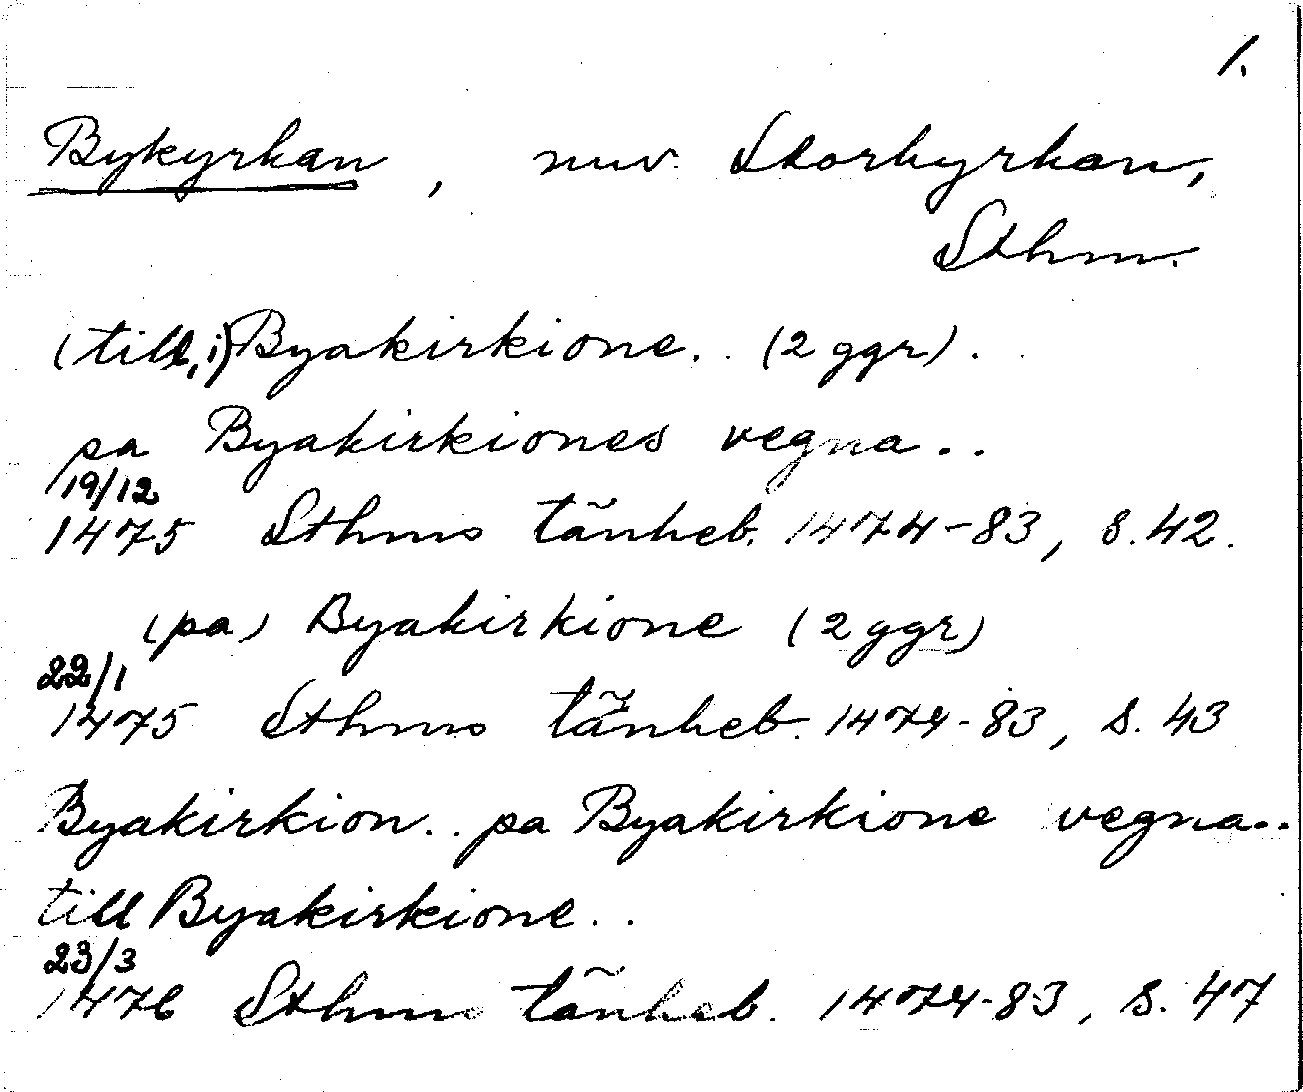 1.
Bykyrkan, nuv. Storkyrkan,
Sthm.
(till, i) Byakirkione.. (2 ggr).
pa Byakirkiones vegna..
19/12
1475 Sthms tänkeb. 1474-83, s. 42.
(pa) Byakirkione (2 ggr)
22/1
1475 Sthms tänkeb. 1474-83, s. 43
Byakirkion.. pa Byakirkione vegna..
till Byakirkione..
23/3
1476 Sthms tänkeb. 1474-83, s. 47